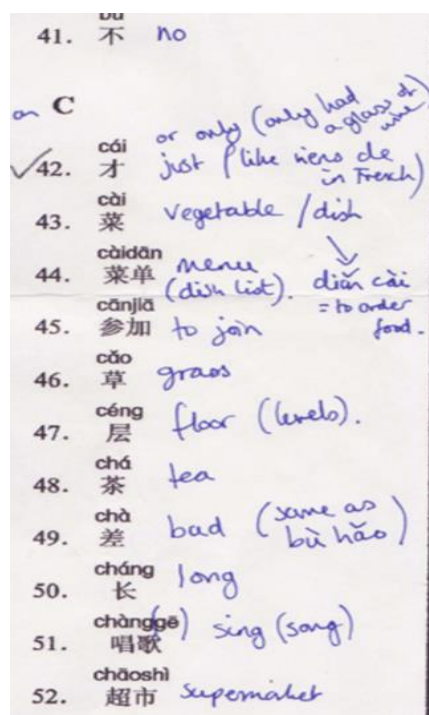 bù
41. 不 no
on C
or only (only had a glass of wine
cái
42. 才 just (like viens de in French)
cài
43. 菜 vegetable / dish
càidān
44. 菜单 menu (dish list).
diǎn cài = to order food.
cānjiā
45. 参加 to join
cǎo
46. 草 grass
céng
47. 层 floor (levels).
chá
48. 茶 tea
chà
49. 差 bad (same as bù hǎo)
cháng
50. 长 long
chànggē
51. 唱歌 sing (song)
chāoshì
52. 超市 supermarket